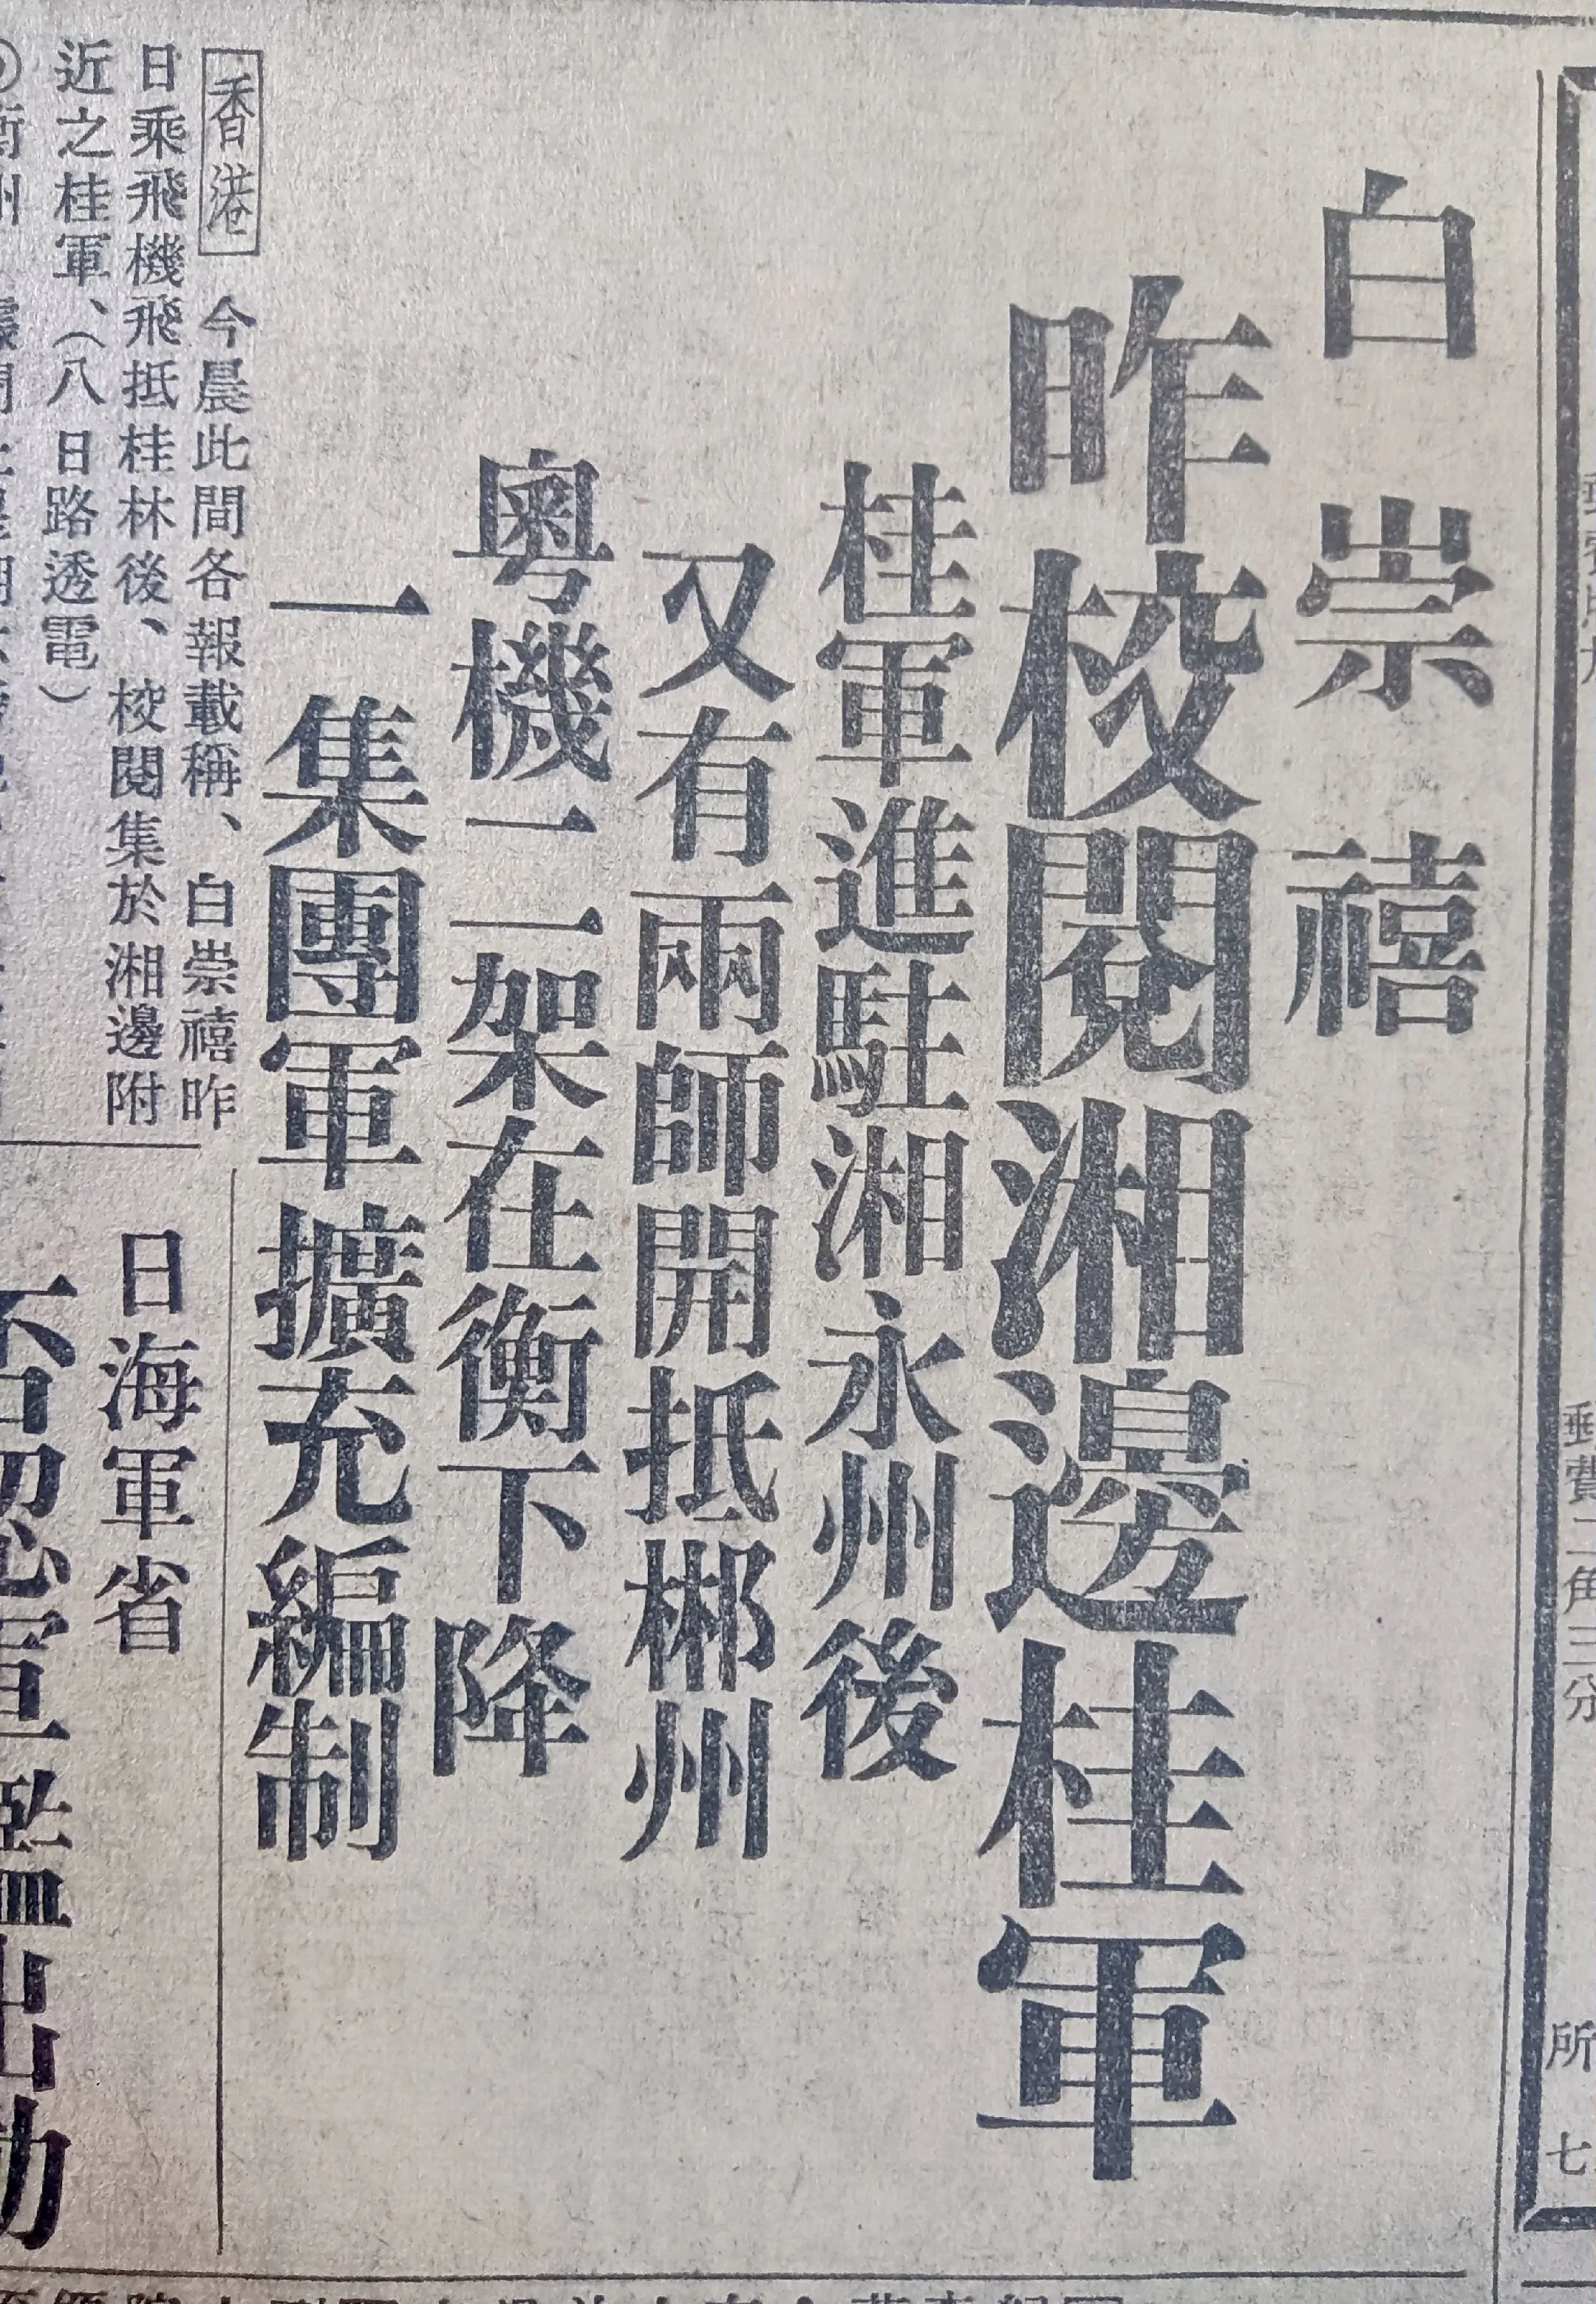 郵費二角三分
所
七
白崇禧
昨校閱湘邊桂軍
桂軍進駐湘永州後
又有兩師開抵郴州
粵機二架在衡下降
一集團軍擴充編制
香港 今晨此間各報載稱、白崇禧昨
日乘飛機飛抵桂林後、校閱集於湘邊附
近之桂軍、（八日路透電）
日海軍省